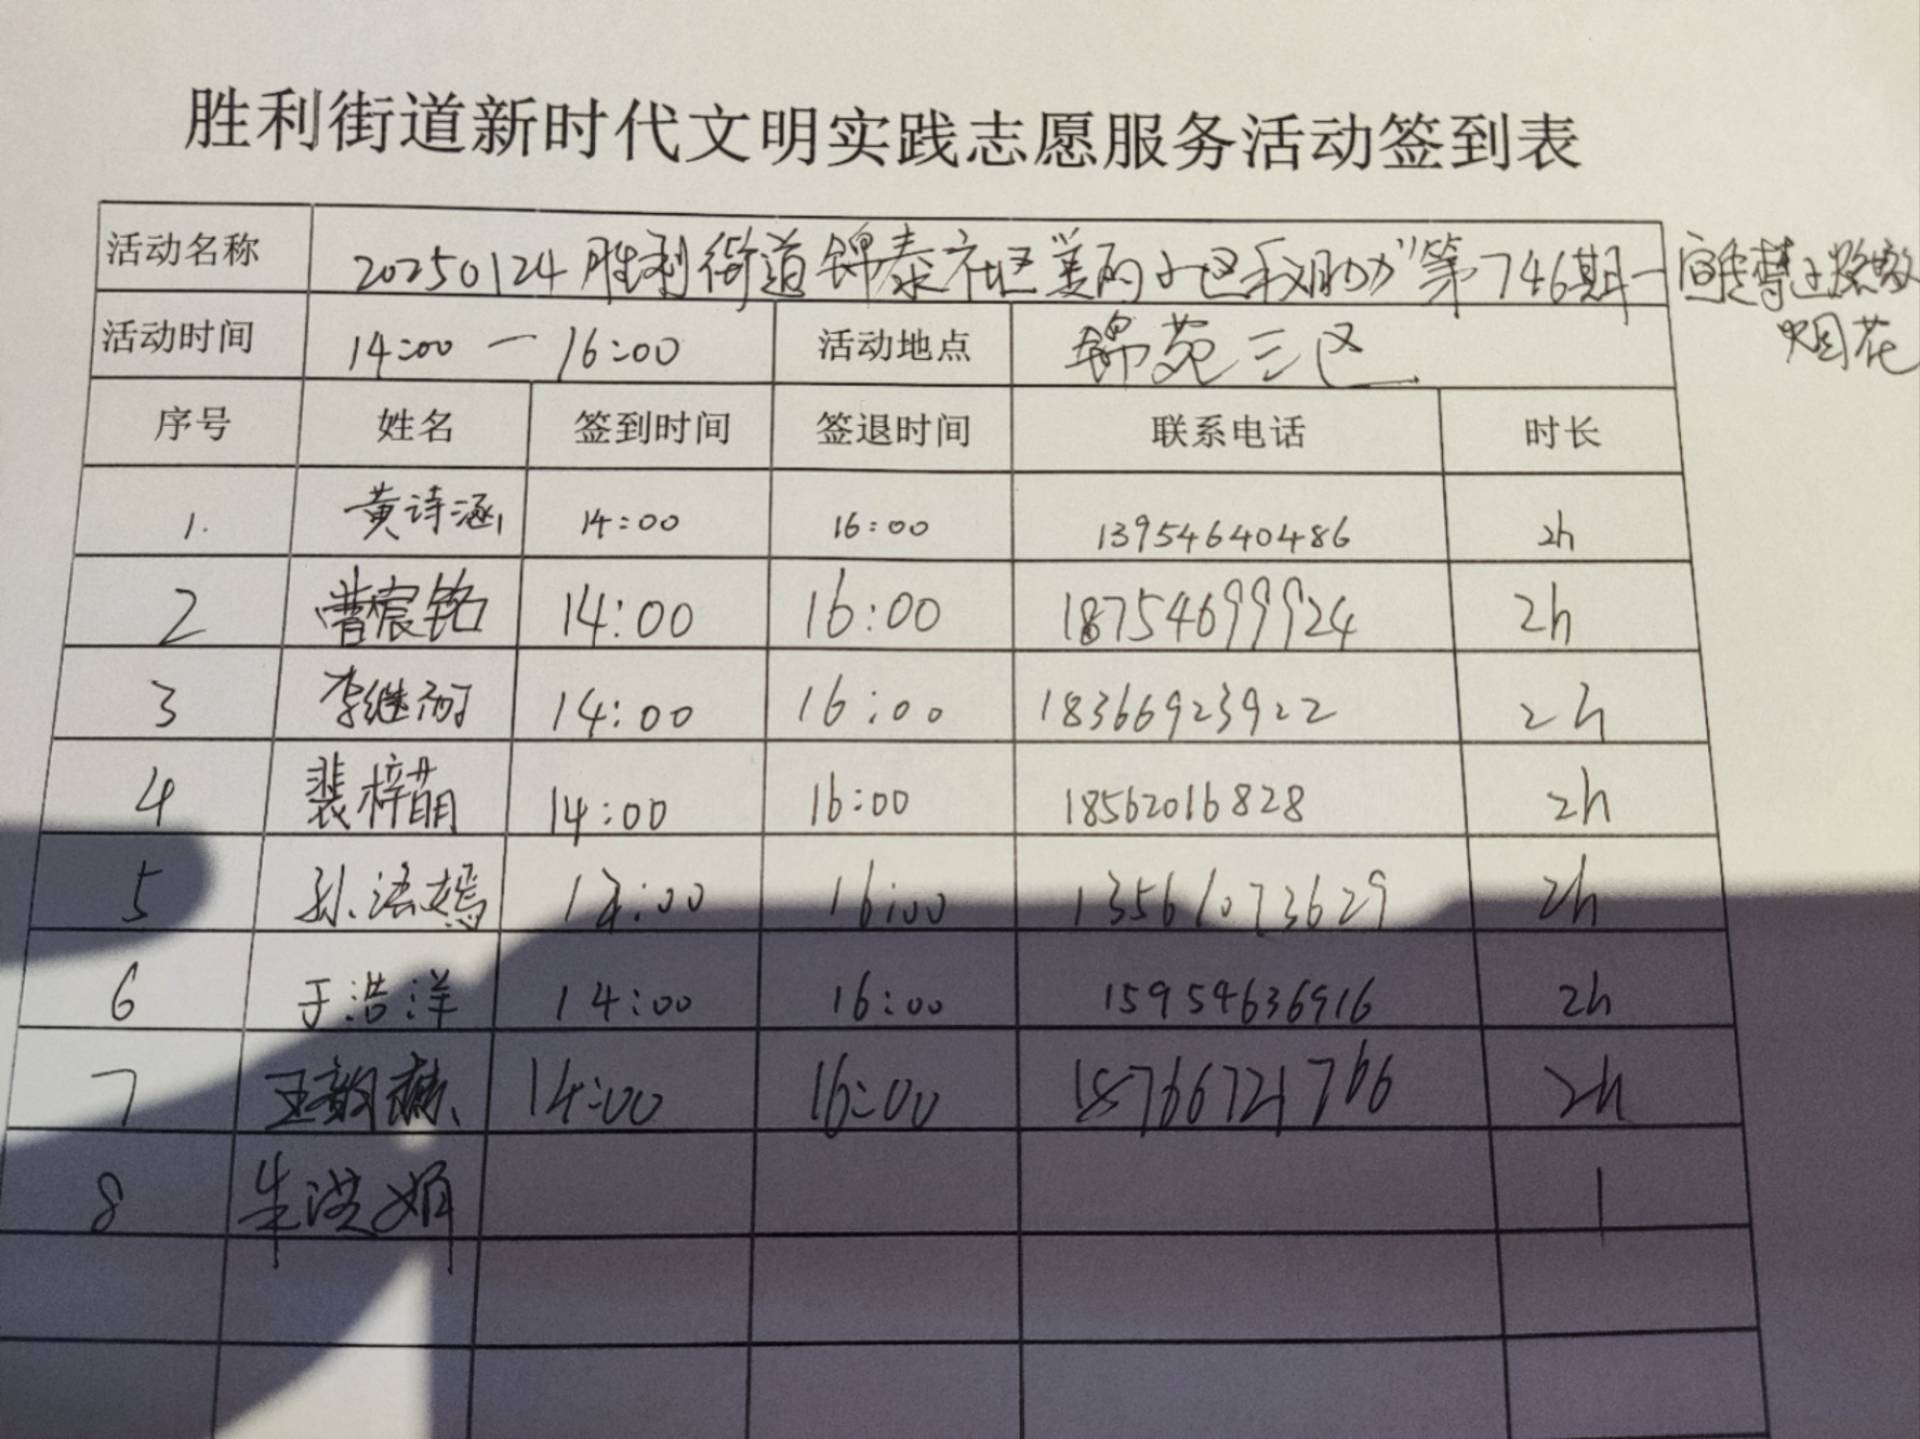 胜利街道新时代文明实践志愿服务活动签到表
活动名称 20250124胜利街道锦泰社区"美丽小区我助力"第746期一
烟花
活动时间 14:00一16:00 活动地点 锦苑三区
序号 姓名 签到时间 签退时间 联系电话 时长
1. 黄诗涵 14:00 16:00 13954640486 2h
2 曹宸铭 14:00 16:00 18754699924 2h
3 李继 14:00 16:00 18366923922 2h
4 裴梓萌 14:00 16:00 18562016828 2h
5 孙语嫣 14:00 16:00 13561073629 2h
6 于浩洋 14:00 16:00 15954636916 2h
7 王 14:00 16:00 18766721766 2h
8 朱洪娟 1